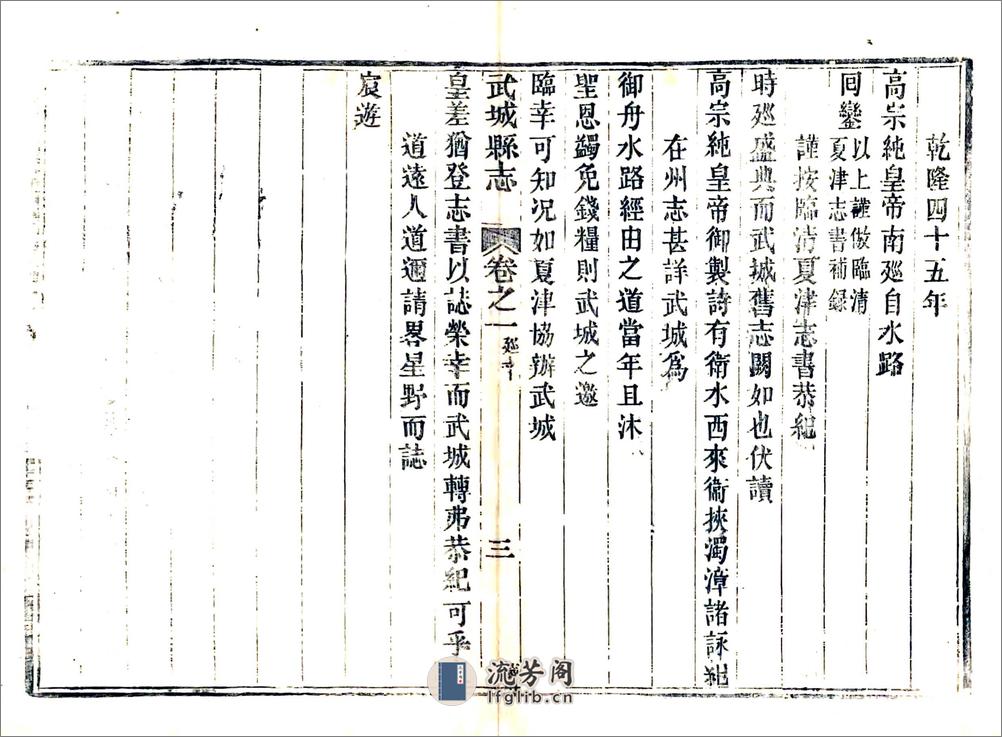 乾隆四十五年
高宗純皇帝南廵自水路
回鑾以上謹倣臨清
夏津志書補録
謹按臨清夏津志書恭紀
時廵盛典而武城舊志闕如也伏讀
高宗純皇帝御製詩有衛水西來衞挾濁漳諸詠紀
在州志甚詳武城爲
御舟水路經由之道當年且沐
聖恩蠲免錢糧則武城之邀
臨幸可知况如夏津協辦武城
武城縣志 卷之一 廵幸 三
皇差猶登志書以誌榮幸而武城轉弗恭紀可乎
道遠人道邇請畧星野而誌
宸遊
流芳阁
lfglib.cn